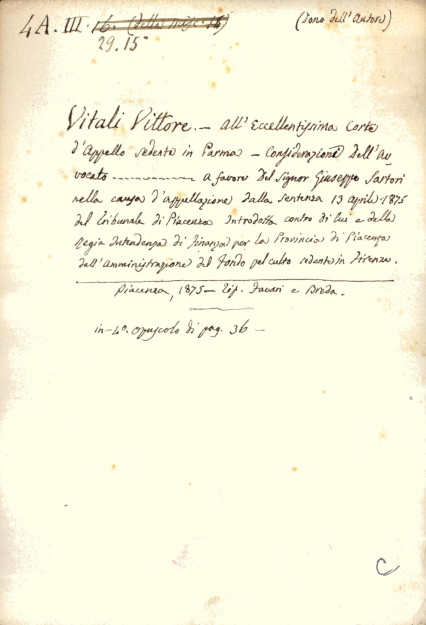 4A. III. 16. (della Misc. 16) (Dono dell'Autore)
29. 15
Vitali Vittore. — All'Eccellentissima Corte
d'Appello sedente in Parma — Considerazioni dell'Av
vocato ———— a favore del Signor Giuseppe Sartori
nella causa d'appellazione dalla sentenza 13 aprile 1875
del Tribunale di Piacenza Introdotta contro di lui e della
Regia Intendenza di finanza per la Provincia di Piacenza
dall'amministrazione del fondo pel culto sedente in Firenze.
Piacenza, 1875 — Tip. Favari e Breda.
in-4° opuscolo di pag. 36 —
C